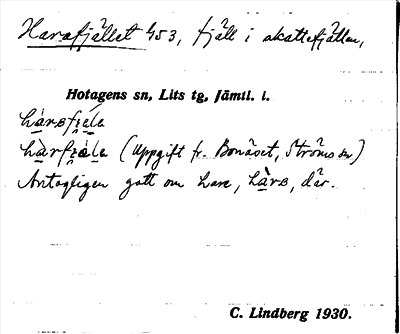 Harafjället 453, fjäll i skattefjällen,
Hotagens sn, Lits tg, Jämtl. l.
hàrafjæ̀la
hàrfjæ̀la (uppgift fr. Bonäset, Ströms sn)
Antagligen gott om hare, hàra, där.
C. Lindberg 1930.